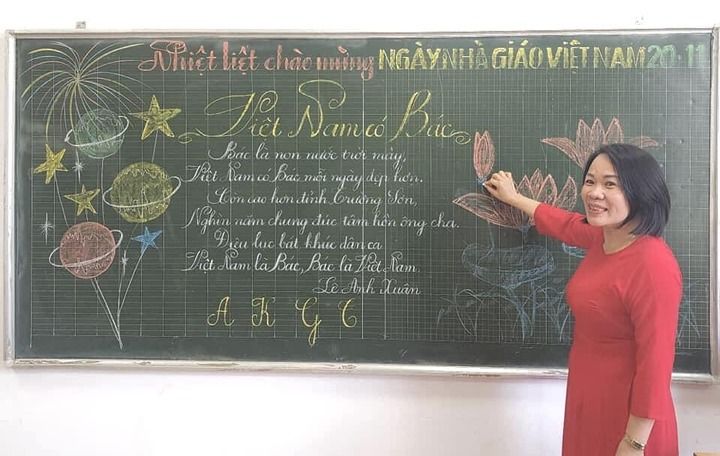 Nhiệt liệt chào mừng NGÀY NHÀ GIÁO VIỆT NAM 20-11
Việt Nam có Bác
Bác là non nước trời mây,
Việt Nam có Bác mỗi ngày đẹp hơn.
Còn cao hơn đỉnh Trường Sơn,
Nghìn năm chung đúc tâm hồn ông cha.
Điệu lục bát khúc dân ca
Việt Nam là Bác, Bác là Việt Nam
Lê Anh Xuân
A K G C